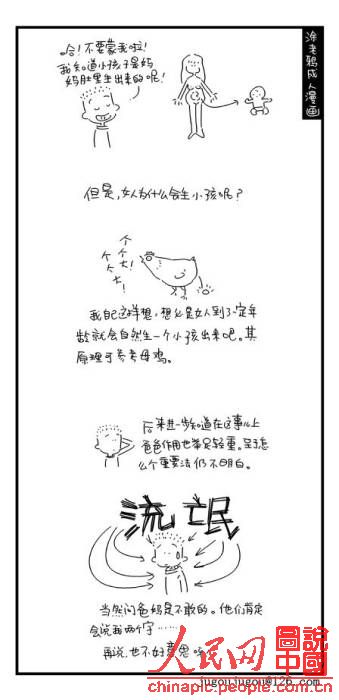 涂老鸦成人漫画
哈！不要蒙我啦！
我知道小孩子是妈
妈肚里生出来的呢！
但是，女人为什么会生小孩呢？
个个大！
个个大！
我自己这样想，想必是女人到了一定年
龄就会自然生一个小孩出来吧。其
原理可参考母鸡。
后来进一步知道在这事儿上
爸爸作用也举足轻重。至于怎
么个重要法仍不明白。
流氓
当然问爸妈是不敢的。他们肯定
会说我两个字……
再说，也不好意思
人民网
圖說中國
jugoujugou@126.
chinapic.people.com.cn